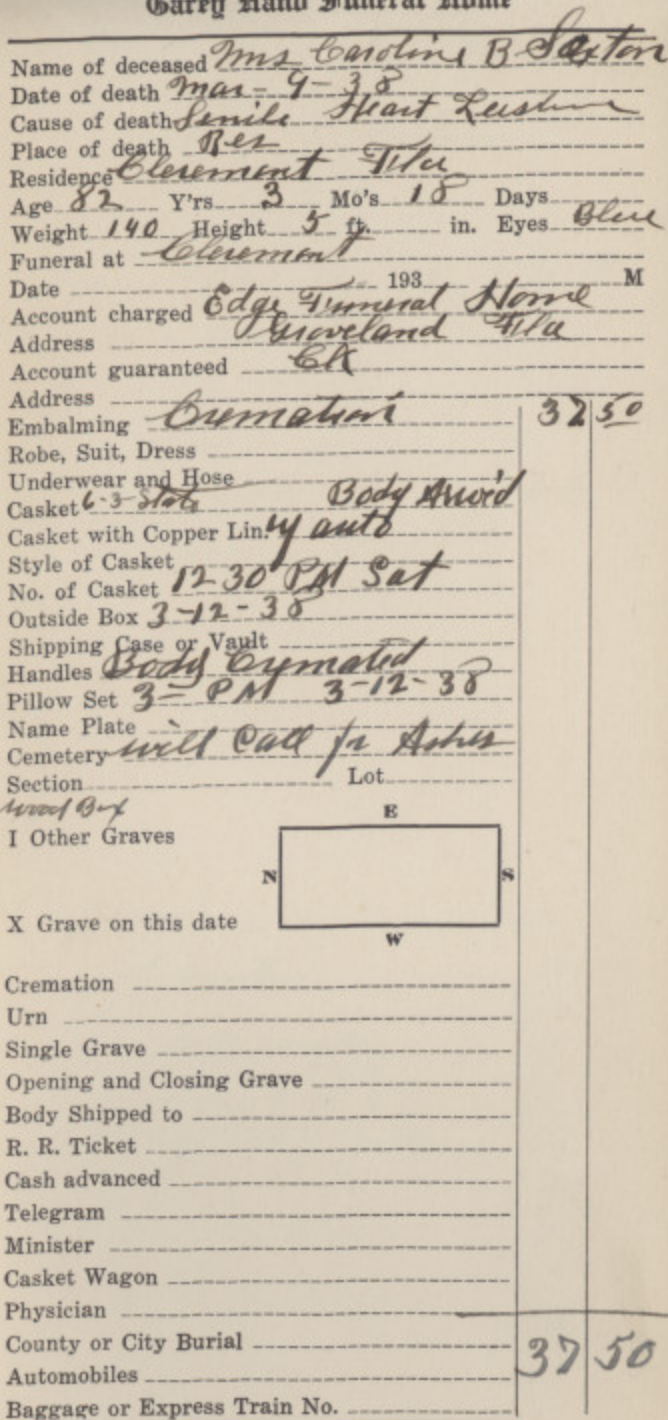 Garey Hand Funeral Home
Name of deceased Mrs Caroline B Sexton
Date of death Mar-9-38
Cause of death Senile Heart Leision
Place of death Res
Residence Cleremont Fla
Age 82 Y'rs 3 Mo's 18 Days
Weight 140 Height 5 ft. in. Eyes Blue
Funeral at Cleremont
Date 193 M
Account charged Edge Funeral Home
Address Groveland Fla
Account guaranteed
Address
Embalming Cremation 37 50
Robe, Suit, Dress
Underwear and Hose
Casket 6-3 State Body Arriv'd
Casket with Copper Lin. By auto
Style of Casket
No. of Casket 12 30 PM Sat
Outside Box 3-12-38
Shipping Case or Vault
Handles Body Cremated
Pillow Set 3= PM 3-12-38
Name Plate
Cemetery will Call for Ashes
Section Lot
Wood Box
E
I Other Graves
N S
X Grave on this date
W
Cremation
Urn
Single Grave
Opening and Closing Grave
Body Shipped to
R. R. Ticket
Cash advanced
Telegram
Minister
Casket Wagon
Physician
County or City Burial 37 50
Automobiles
Baggage or Express Train No.